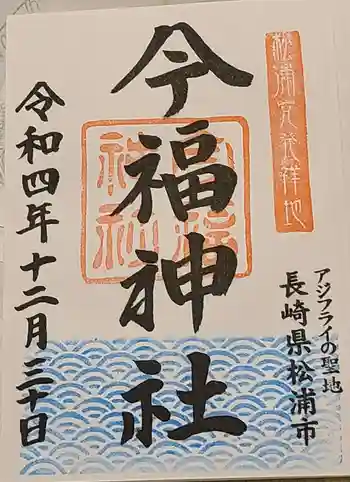 松浦党発祥地
アジフライの聖地
長崎県松浦市
今福神社
今福神社
令和四年十二月三十日